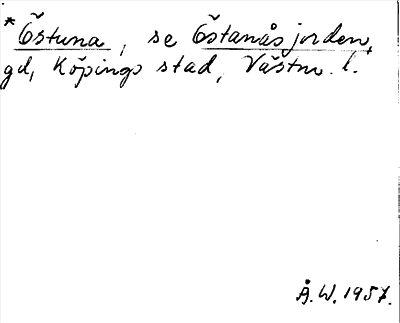 *Östuna, se Östanåsjorden,
gd, Köpings stad, Västm. l.
Å.W. 1957.